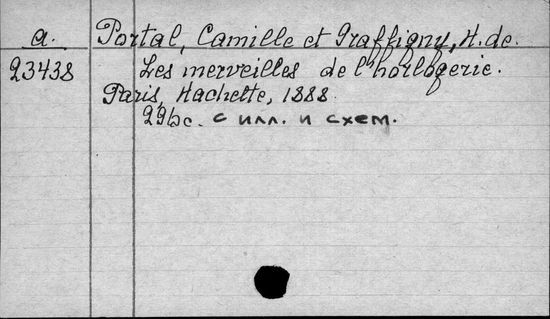 a. Portal, Camille et Graffigny, H. de.
23438 Les merveilles de l'horlogerie.
Paris, Hachette, 1888.
296 с. с илл. и схем.